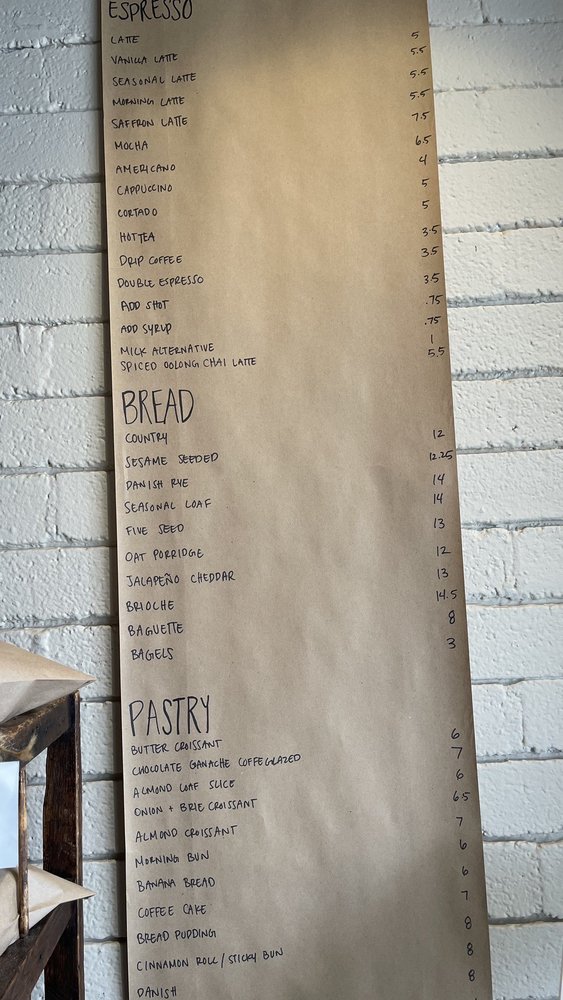 ESPRESSO
LATTE 5
VANILLA LATTE 5.5
SEASONAL LATTE 5.5
MORNING LATTE 5.5
SAFFRON LATTE 7.5
MOCHA 6.5
AMERICANO 4
CAPPUCCINO 5
CORTADO 5
HOT TEA 3.5
DRIP COFFEE 3.5
DOUBLE ESPRESSO 3.5
ADD SHOT .75
ADD SYRUP .75
MILK ALTERNATIVE 1
SPICED OOLONG CHAI LATTE 5.5
BREAD
COUNTRY 12
SESAME SEEDED 12.25
DANISH RYE 14
SEASONAL LOAF 14
FIVE SEED 13
OAT PORRIDGE 12
JALAPEÑO CHEDDAR 13
BRIOCHE 14.5
BAGUETTE 8
BAGELS 3
PASTRY
BUTTER CROISSANT 6
CHOCOLATE GANACHE COFFEGLAZED 7
ALMOND LOAF SLICE 6
ONION + BRIE CROISSANT 6.5
ALMOND CROISSANT 7
MORNING BUN 6
BANANA BREAD 6
COFFEE CAKE 7
BREAD PUDDING 8
CINNAMON ROLL / STICKY BUN 8
DANISH 8